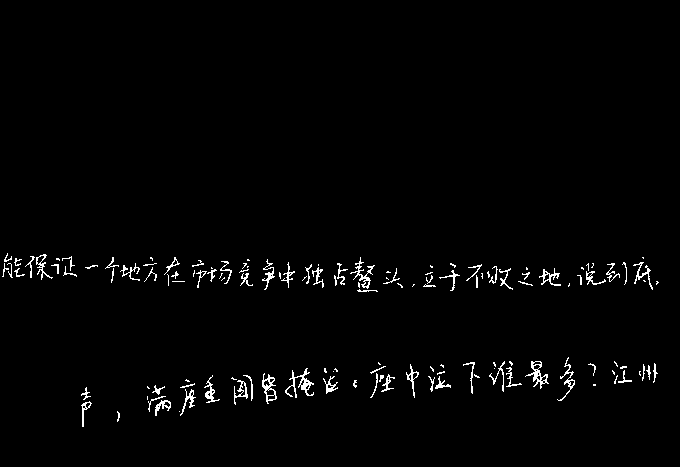 能保证一个地方在市场竞争中独占鳌头,立于不败之地,说到底,
声,满座重闻皆掩泣。座中泣下谁最多?江州